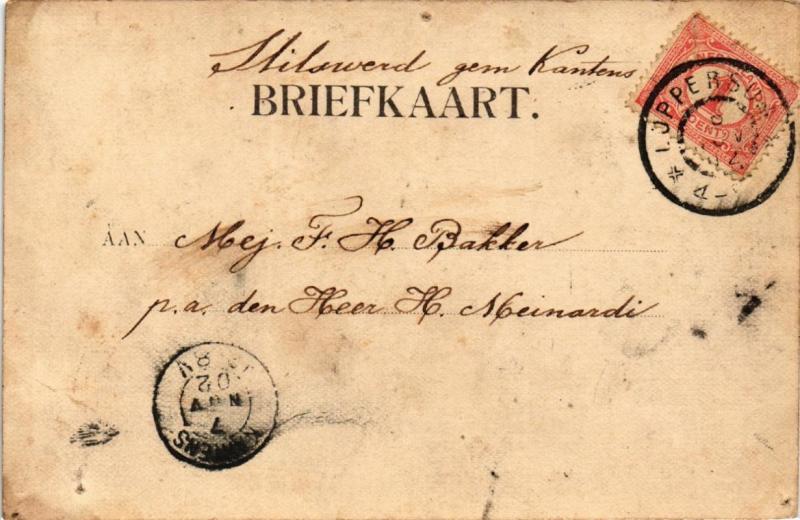 Stilswerd gem Kantens
BRIEFKAART.
AAN Mej. F. H. Bakker
p.a. den Heer H. Meinardi
LOPPERSUM
CENT
KANTENS
7
02
8V